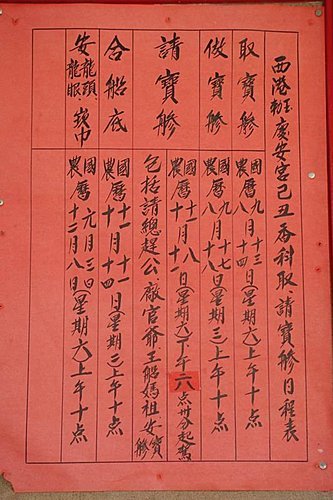 西港玉勅慶安宮己丑香科取、請寶艍日程表
取寶艍
國曆九月十三
農曆八月十四日(星期六)上午十点
做寶艍
國曆九月十七
農曆八月十八日(星期三)上午十点
請寶艍
國曆十一月八
農曆十月十一日(星期六)下午六点卅分起駕
包括請總趕公廠官爺王船媽祖安寶艍
合船底
國曆十一月十一
農曆十月十四日(星期二)上午十点
安龍頭、龍眼、崁巾
國曆元月三日
農曆十二月八日(星期六)上午十点